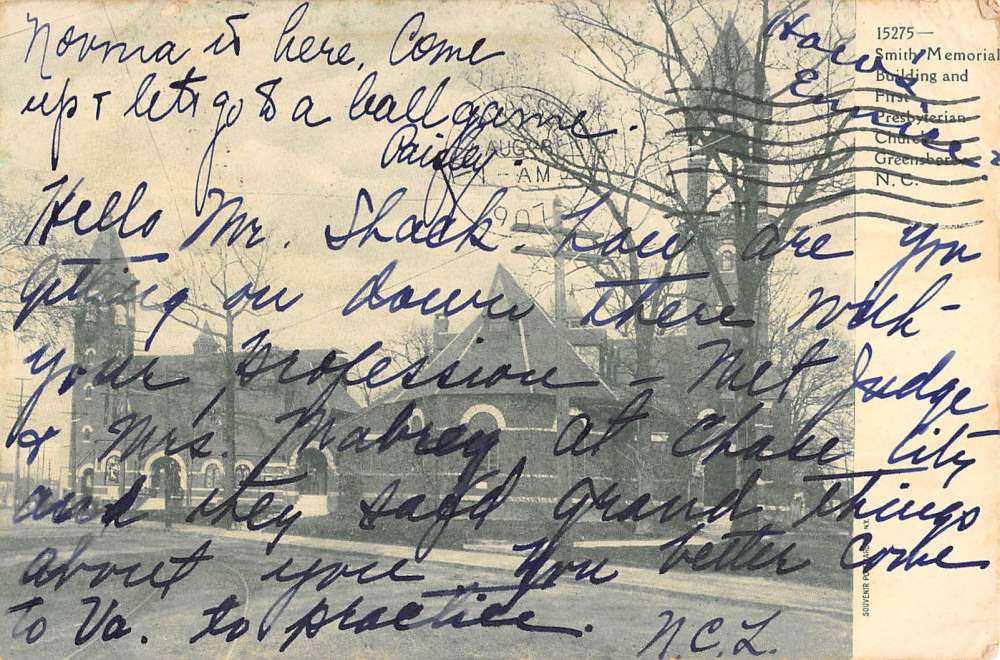 Norma is here, Come
up & let's go to a ball game.
Paisley.
How's
Eunice?
15275—
Smith Memorial
Building and
First
Presbyterian
Church
Greensboro
N. C.
AUG 8
AM
1907
Hello Mr. Shack. How are you
getting on down there with
your profession – Met Judge
& Mrs. Mabrey at Chase City
and they said grand things
about you. You better come
to Va. to practice.
N.C.L.
SOUVENIR POST CARD N.Y.